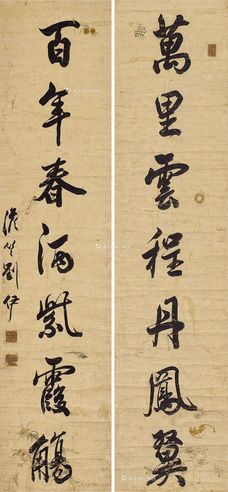 萬里雲程丹鳳翼
百年春酒紫霞觴
劉伊